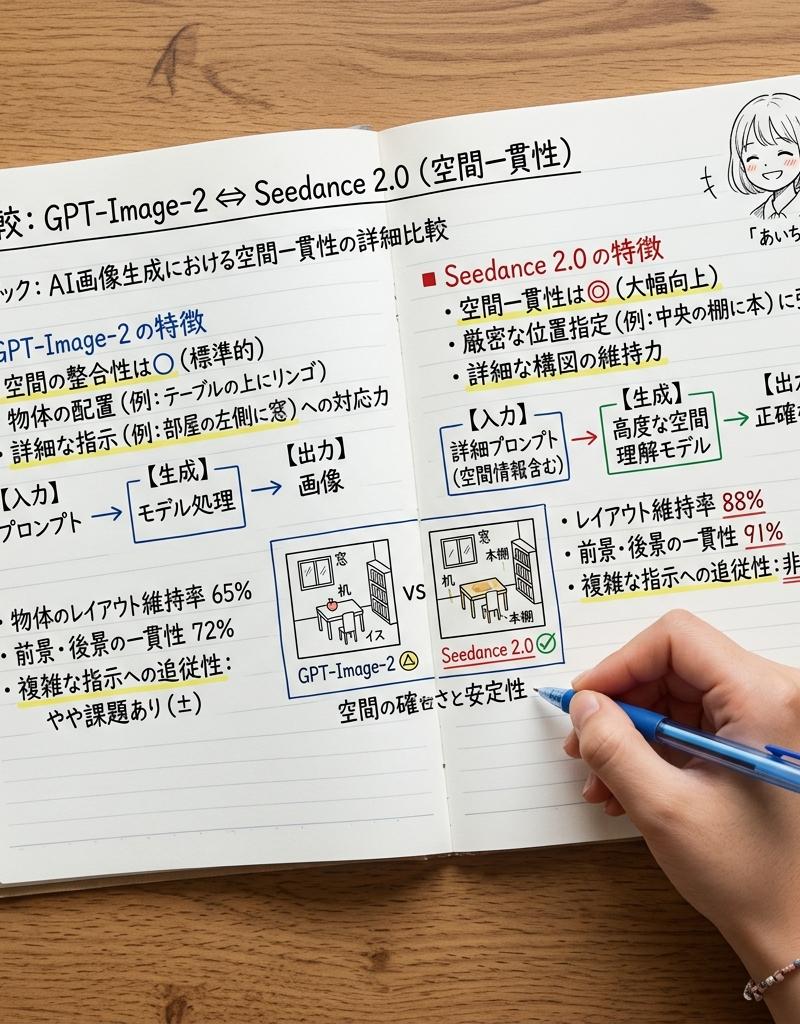 較: GPT-Image-2 ⇔ Seedance 2.0 (空間一貫性)
ック: AI画像生成における空間一貫性の詳細比較
GPT-Image-2 の特徴
空間の整合性は○ (標準的)
物体の配置 (例:テーブルの上にリンゴ)
・詳細な指示 (例:部屋の左側に窓) への対応力
【入力】
プロンプト
→
【生成】
モデル処理
→
【出力】
画像
・物体のレイアウト維持率 65%
・前景・後景の一貫性 72%
・複雑な指示への追従性:
やや課題あり (±)
窓
机
イス
GPT-Image-2
VS
窓
本棚
机
本棚
Seedance 2.0
空間の確 さと安定性
「あいち
■ Seedance 2.0 の特徴
・空間一貫性は◎ (大幅向上)
・厳密な位置指定 (例:中央の棚に本) に
・詳細な構図の維持力
【入力】
詳細プロンプト
(空間情報含む)
→
【生成】
高度な空間
理解モデル
→
【出力
正確
・レイアウト維持率 88%
・前景・後景の一貫性 91%
・複雑な指示への追従性: 非